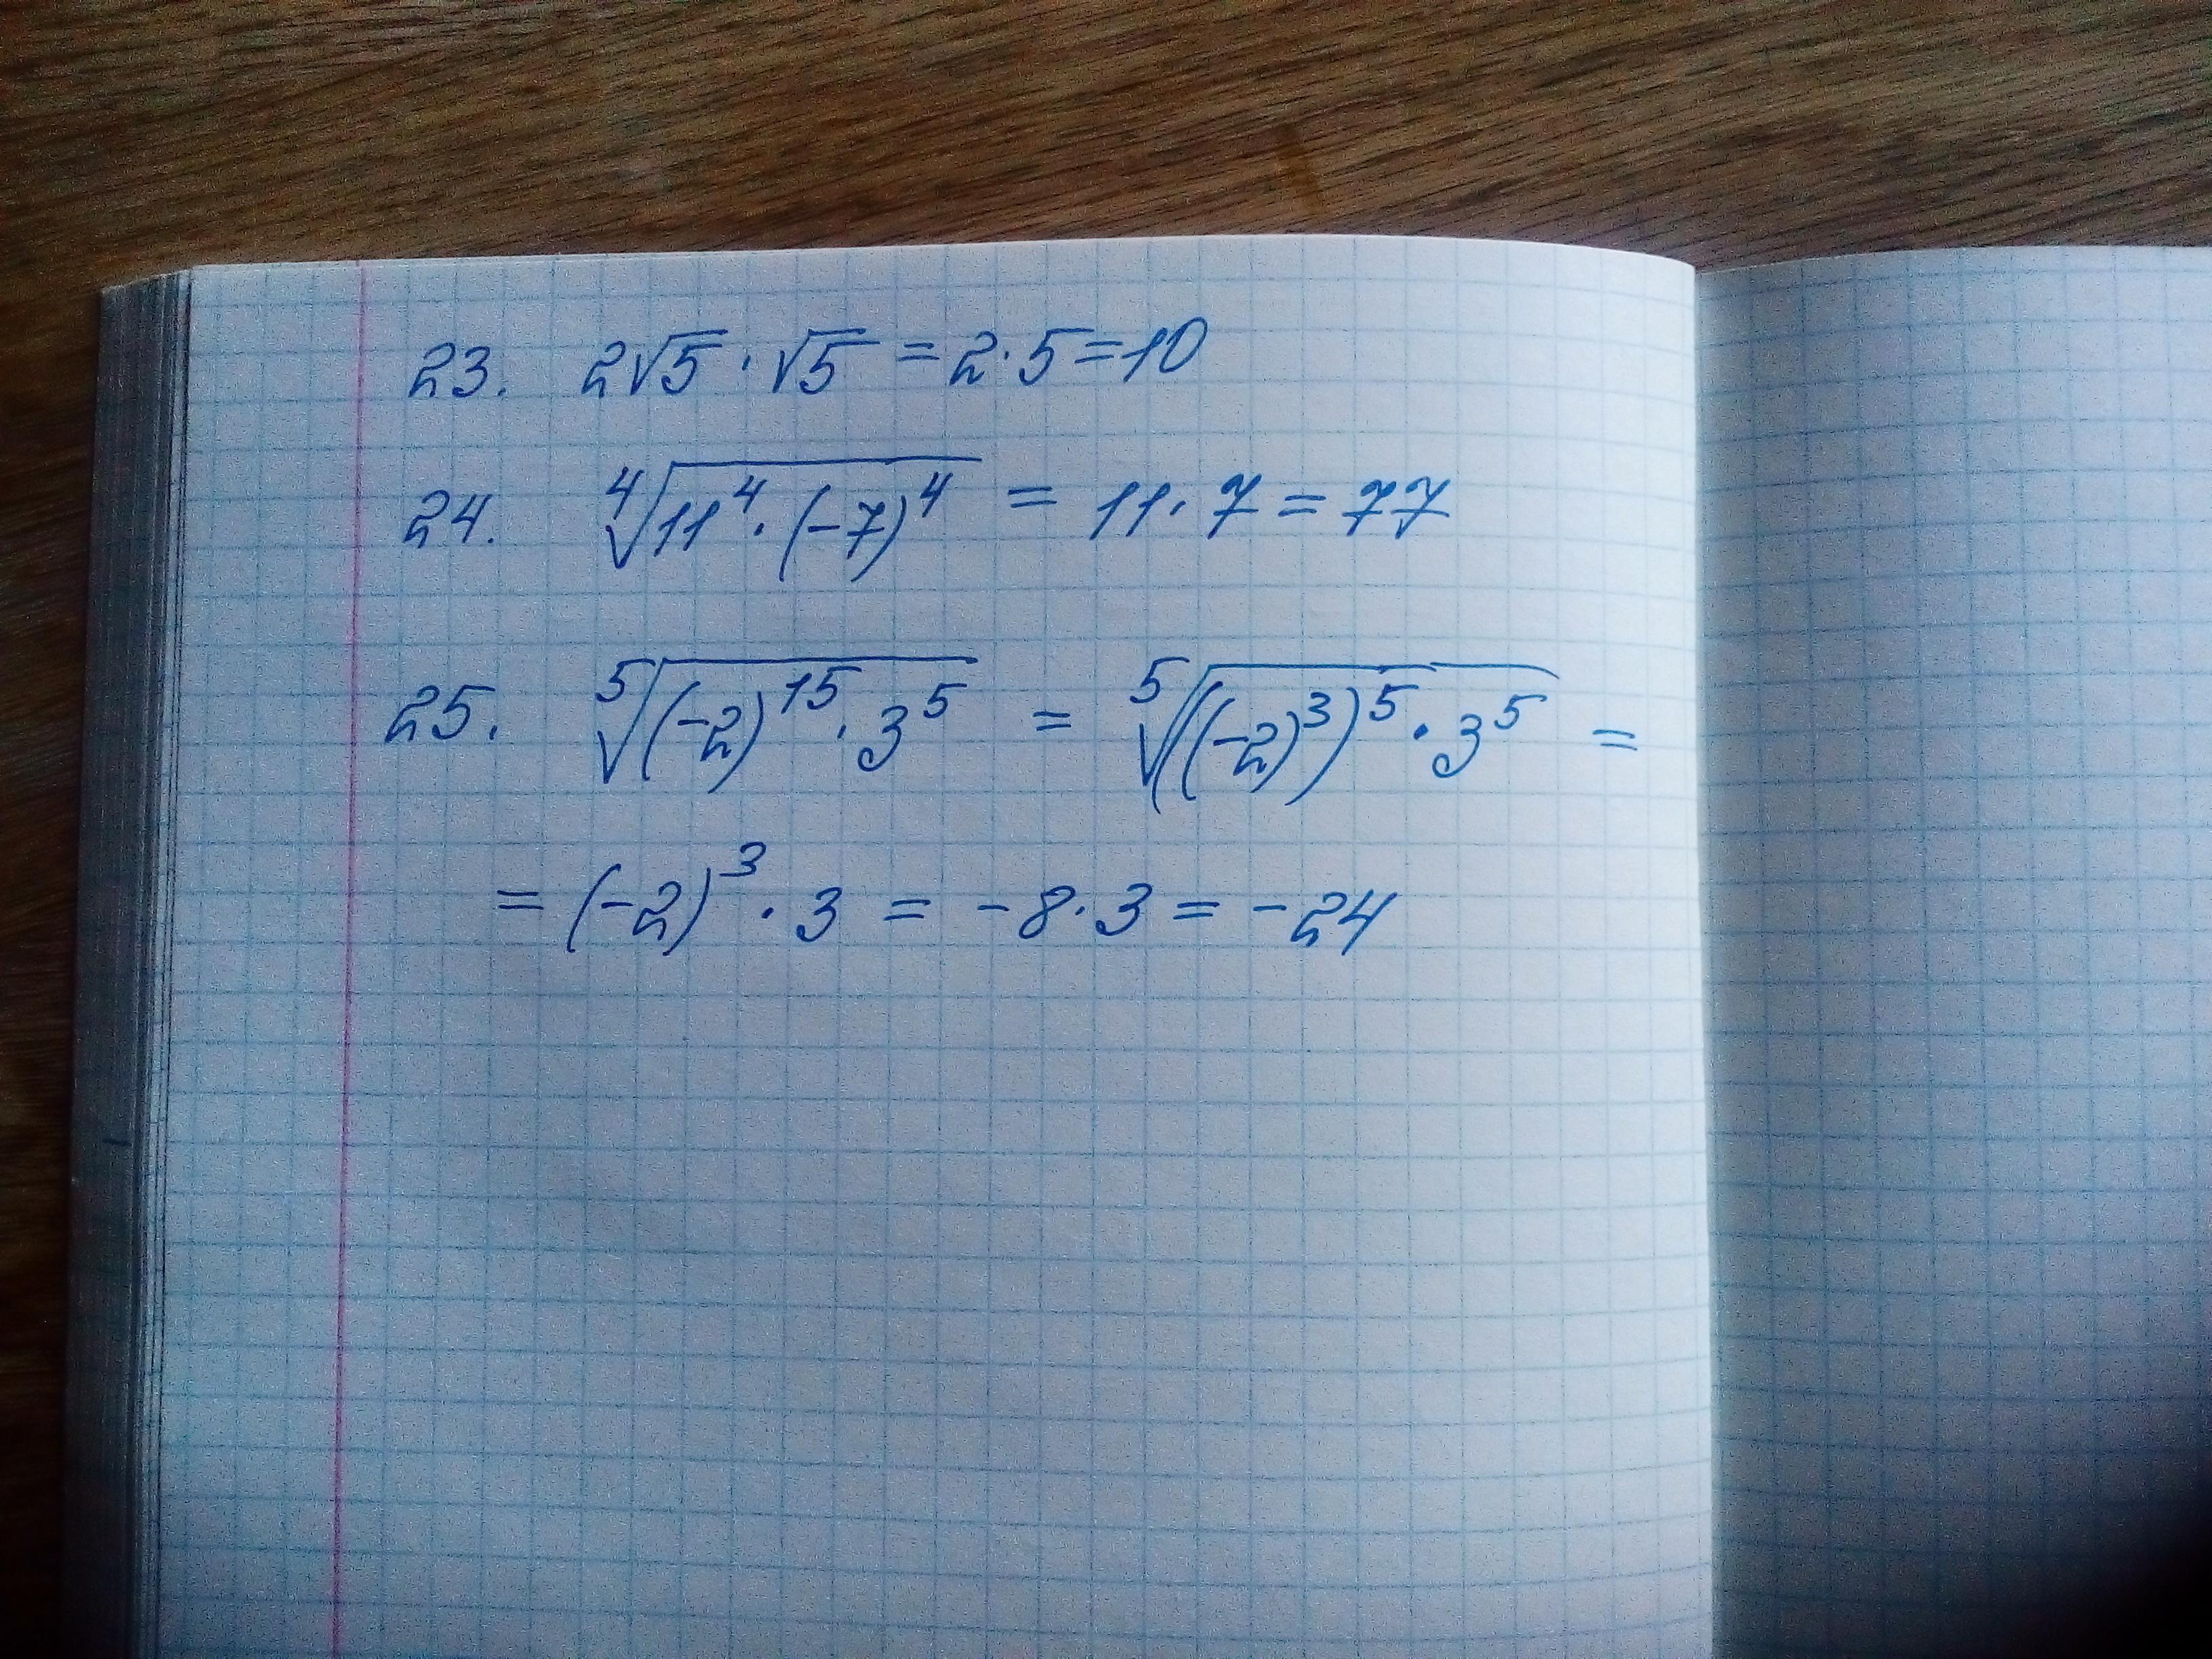 23. 2√5 · √5 = 2·5=10
24. ⁴√(11⁴ · (-7)⁴) = 11·7=77
25. ⁵√((-2)¹⁵ · 3⁵) = ⁵√(((-2)³)⁵ · 3⁵) =
= (-2)³ · 3 = -8·3 = -24